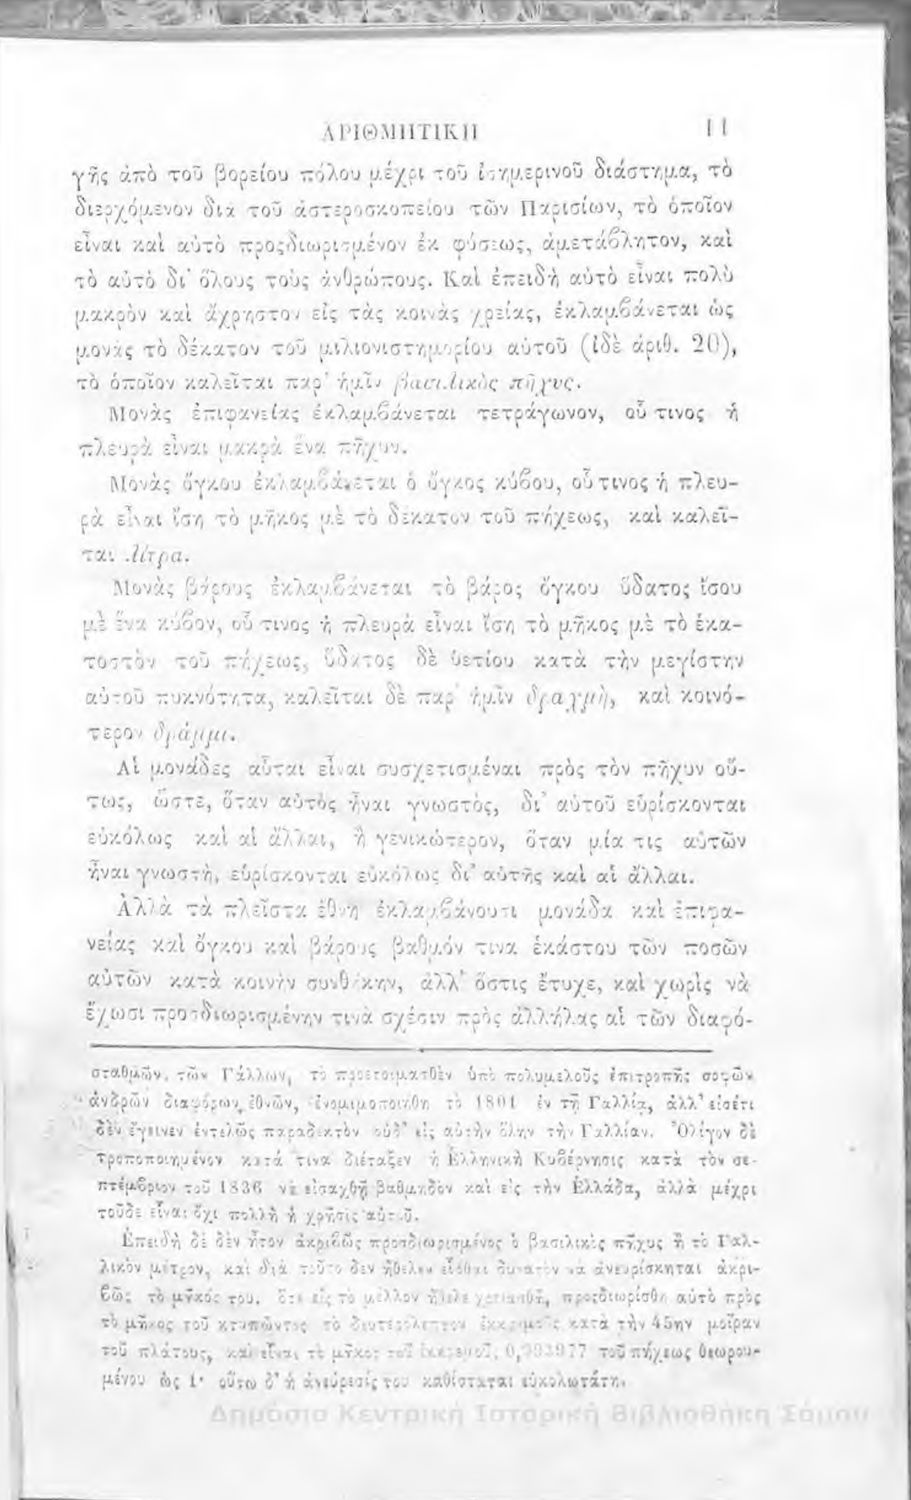 ΑΡΙΘΜΗΤΙΚΗ 11
γῆς ἀπὸ τοῦ βορείου πόλου μέχρι τοῦ ἰσημερινοῦ διάστημα, τὸ
διερχόμενον διὰ τοῦ ἀστεροσκοπείου τῶν Παρισίων, τὸ ὁποῖον
εἶναι καὶ αὐτὸ προςδιωρισμένον ἐκ φύσεως, ἀμετάβλητον, καὶ
τὸ αὐτὸ δι' ὅλους τοὺς ἀνθρώπους. Καὶ ἐπειδὴ αὐτὸ εἶναι πολὺ
μακρὸν καὶ ἄχρηστον εἰς τὰς κοινὰς χρείας, ἐκλαμβάνεται ὡς
μονὰς τὸ δέκατον τοῦ μιλιονιστημορίου αὐτοῦ (ἰδὲ ἀριθ. 20),
τὸ ὁποῖον καλεῖται παρ' ἡμῖν βασιλικὸς πῆχυς.
Μονὰς ἐπιφανείας ἐκλαμβάνεται τετράγωνον, οὗ τινος ἡ
πλευρὰ εἶναι μακρὰ ἕνα πῆχυν.
Μονὰς ὄγκου ἐκλαμβάνεται ὁ ὄγκος κύβου, οὗ τινος ἡ πλευ-
ρὰ εἶναι ἴση τὸ μῆκος μὲ τὸ δέκατον τοῦ πήχεως, καὶ καλεῖ-
ται Λίτρα.
Μονὰς βάρους ἐκλαμβάνεται τὸ βάρος ὄγκου ὕδατος ἴσου
μὲ ἕνα κύβον, οὗ τινος ἡ πλευρὰ εἶναι ἴση τὸ μῆκος μὲ τὸ ἑκα-
τοστὸν τοῦ πήχεως, ὕδατος δὲ ὑετίου κατὰ τὴν μεγίστην
αὐτοῦ πυκνότητα, καλεῖται δὲ παρ' ἡμῖν δραχμὴ, καὶ κοινό-
τερον δράμμι.
Αἱ μονάδες αὗται εἶναι συσχετισμέναι πρὸς τὸν πῆχυν οὕ-
τως, ὥστε, ὅταν αὐτὸς ἦναι γνωστὸς, δι' αὐτοῦ εὑρίσκονται
εὐκόλως καὶ αἱ ἄλλαι, ἢ γενικώτερον, ὅταν μία τις αὐτῶν
ἦναι γνωστὴ, εὑρίσκονται εὐκόλως δι' αὐτῆς καὶ αἱ ἄλλαι.
Ἀλλὰ τὰ πλεῖστα ἔθνη ἐκλαμβάνουσι μονάδα καὶ ἐπιφα-
νείας καὶ ὄγκου καὶ βάρους βαθμόν τινα ἑκάστου τῶν ποσῶν
αὐτῶν κατὰ κοινὴν συνθήκην, ἀλλ' ὅστις ἔτυχε, καὶ χωρὶς νὰ
ἔχωσι προσδιωρισμένην τινὰ σχέσιν πρὸς ἀλλήλας αἱ τῶν διαφό-
σταθμῶν, τῶν Γάλλων, τὸ προετοιμασθὲν ὑπὸ πολυμελοῦς ἐπιτροπῆς σοφῶν
ἀνδρῶν διαφόρων ἐθνῶν, ἐνομιμοποιήθη τὸ 1801 ἐν τῇ Γαλλίᾳ, ἀλλ' εἰσέτι
δὲν ἔγεινεν ἐντελῶς παραδεκτὸν οὐδ' εἰς αὐτὴν ὅλην τὴν Γαλλίαν. Ὀλίγον δὲ
τροποποιημένον κατά τινα διέταξεν ἡ Ἑλληνικὴ Κυβέρνησις κατὰ τὸν σε-
πτέμβριον τοῦ 1836 νὰ εἰσαχθῇ βαθμηδὸν καὶ εἰς τὴν Ἑλλάδα, ἀλλὰ μέχρι
τοῦδε εἶναι ὄχι πολλὴ ἡ χρῆσις αὐτοῦ.
Ἐπειδὴ δὲ δὲν ἦτον ἀκριβῶς προσδιωρισμένος ὁ βασιλικὸς πῆχυς ἢ τὸ Γαλ-
λικὸν μέτρον, καὶ διὰ τοῦτο δὲν ἤθελεν εἶσθαι δυνατὸν νὰ ἀνευρίσκηται ἀκρι-
βῶς τὸ μῆκός του, ὅτε εἰς τὸ μέλλον ἤθελε χρειασθῆ, προςδιωρίσθη αὐτὸ πρὸς
τὸ μῆκος τοῦ κτυπῶντος τὸ δευτερόλεπτον ἐκκρεμοῦς κατὰ τὴν 45ην μοῖραν
τοῦ πλάτους, καὶ εἶναι τὸ μῆκος τοῦ ἐκκρεμοῦς τοῦ πήχεως θεωρου-
μένου ὡς 1· οὕτω δ' ἡ ἀνεύρεσίς του καθίσταται εὐκολωτάτη.
Δημόσια Κεντρική Ιστορική Βιβλιοθήκη Σάμου